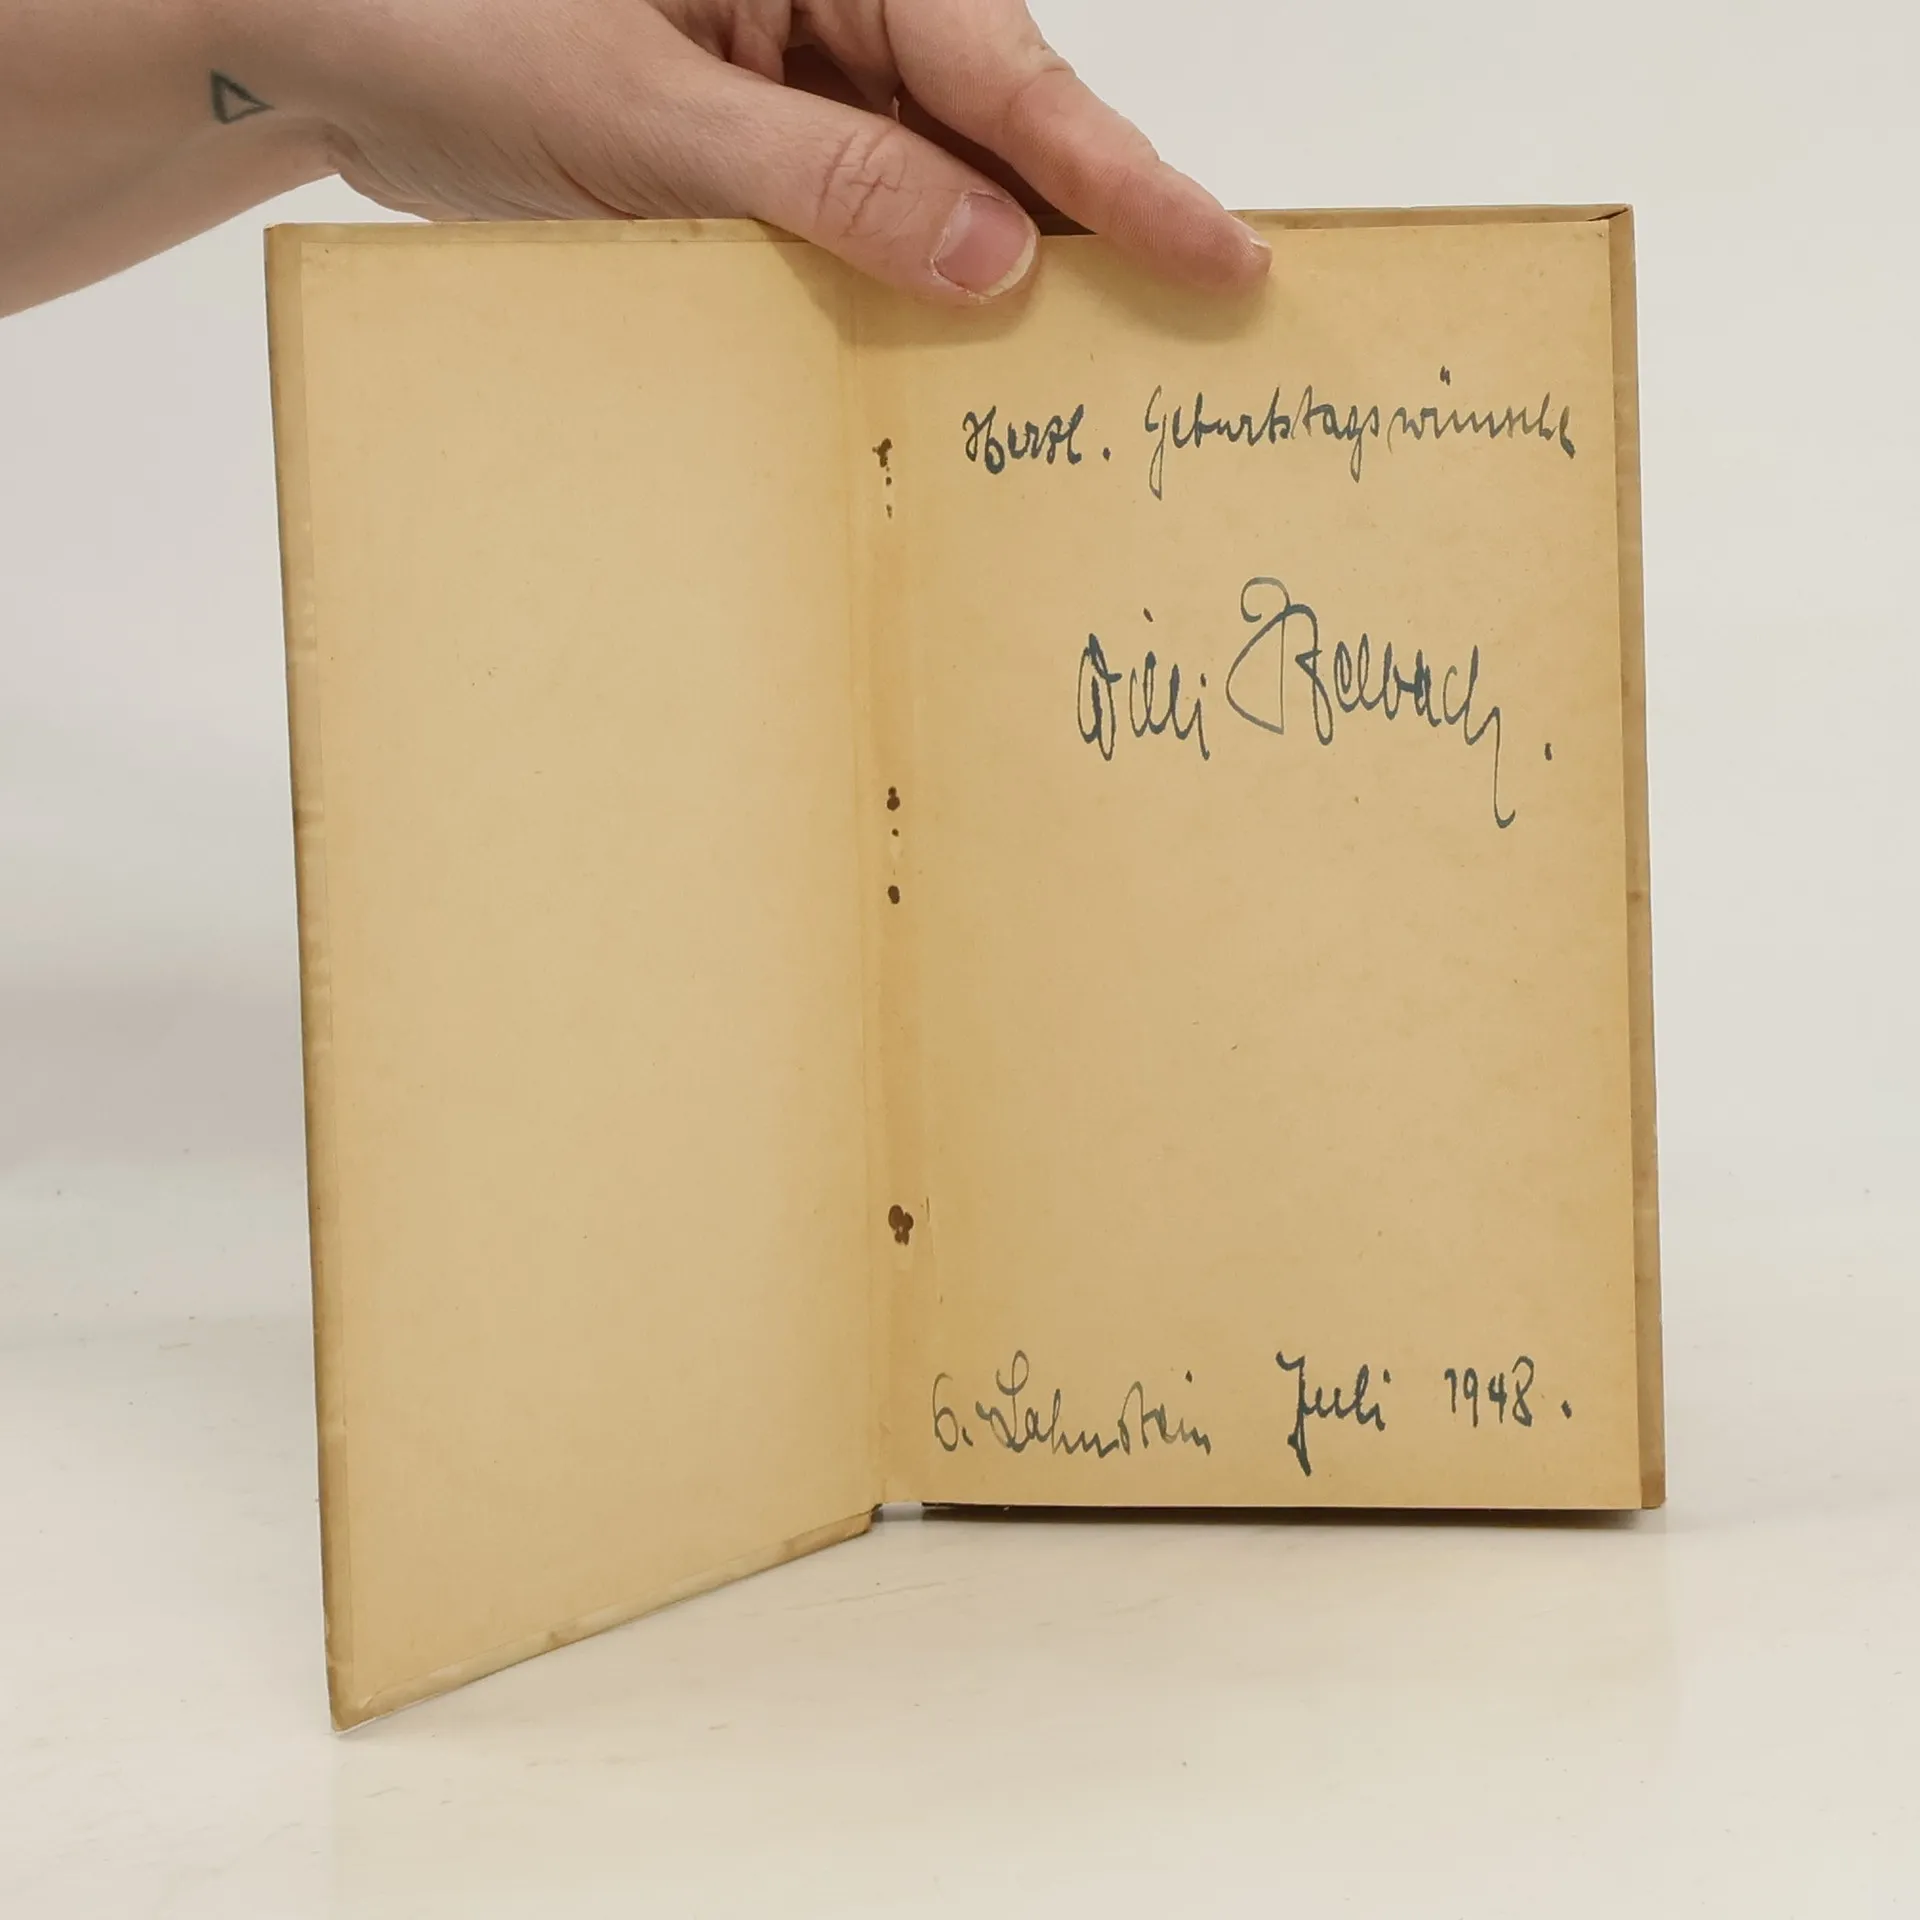 Herzl. Geburtstagswünsche
Willi
O. Lahnstein Juli 1948.